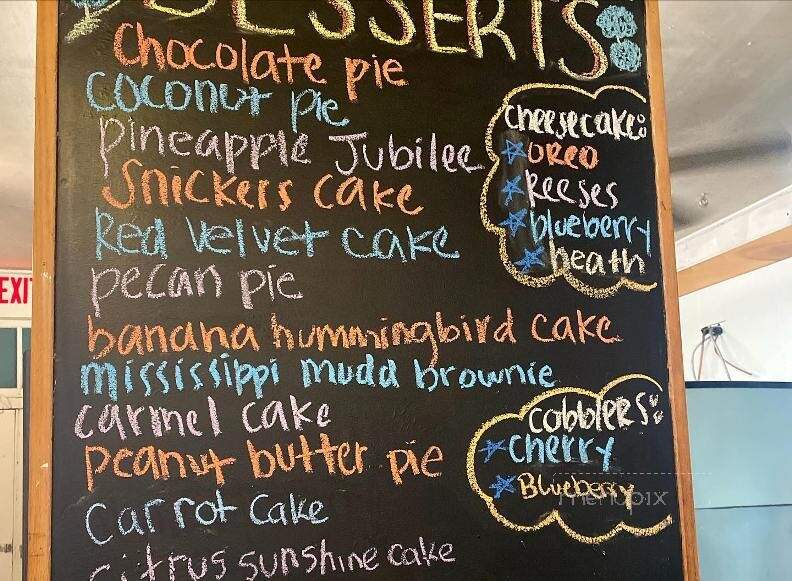 DESSERTS
Chocolate pie
coconut pie
pineapple Jubilee
Snickers cake
Red velvet cake
pecan pie
banana hummingbird cake
mississippi mudd brownie
carmel cake
peanut butter pie
Carrot Cake
Citrus sunshine cake
cheesecake:
OREO
REESES
blueberry
heath
cobblers:
cherry
Blueberry
menupix
EXIT